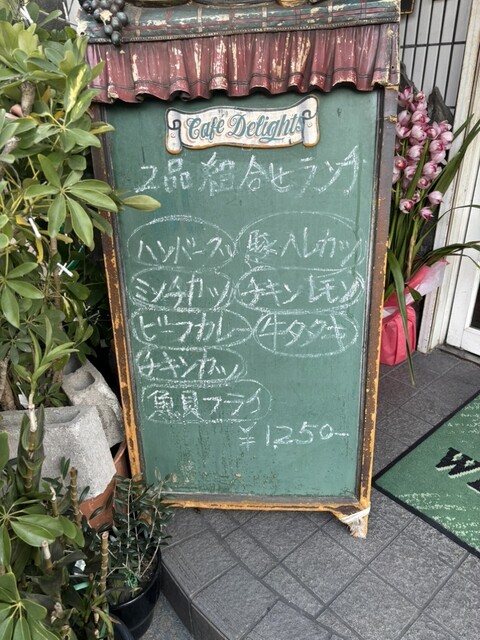 Café Delights
2品組合せランチ
ハンバーグ 豚ヘレカツ
ミンチカツ チキンレモン
ビーフカレー 牛タタキ
チキンカツ
魚貝フライ
¥1,250-